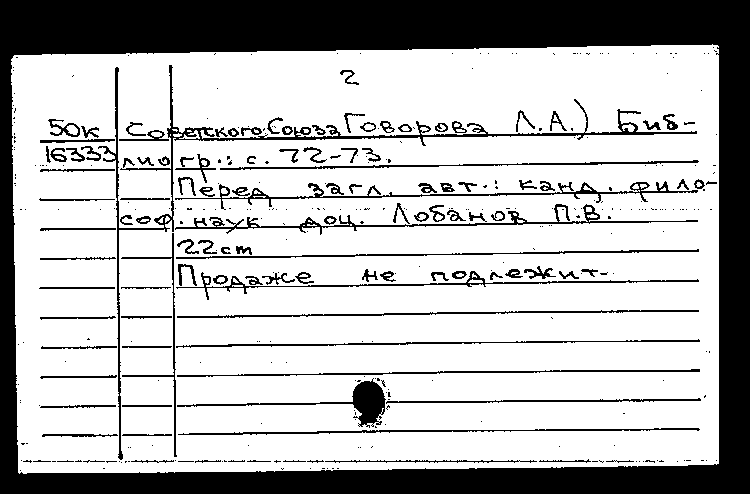 2
50к Советского Союза Говорова Л.А.) Биб-
16333 лиогр.: с. 72-73.
Перед загл. авт.: канд. фило-
соф. наук доц. Лобанов П.В.
22 cm
Продаже не подлежит.